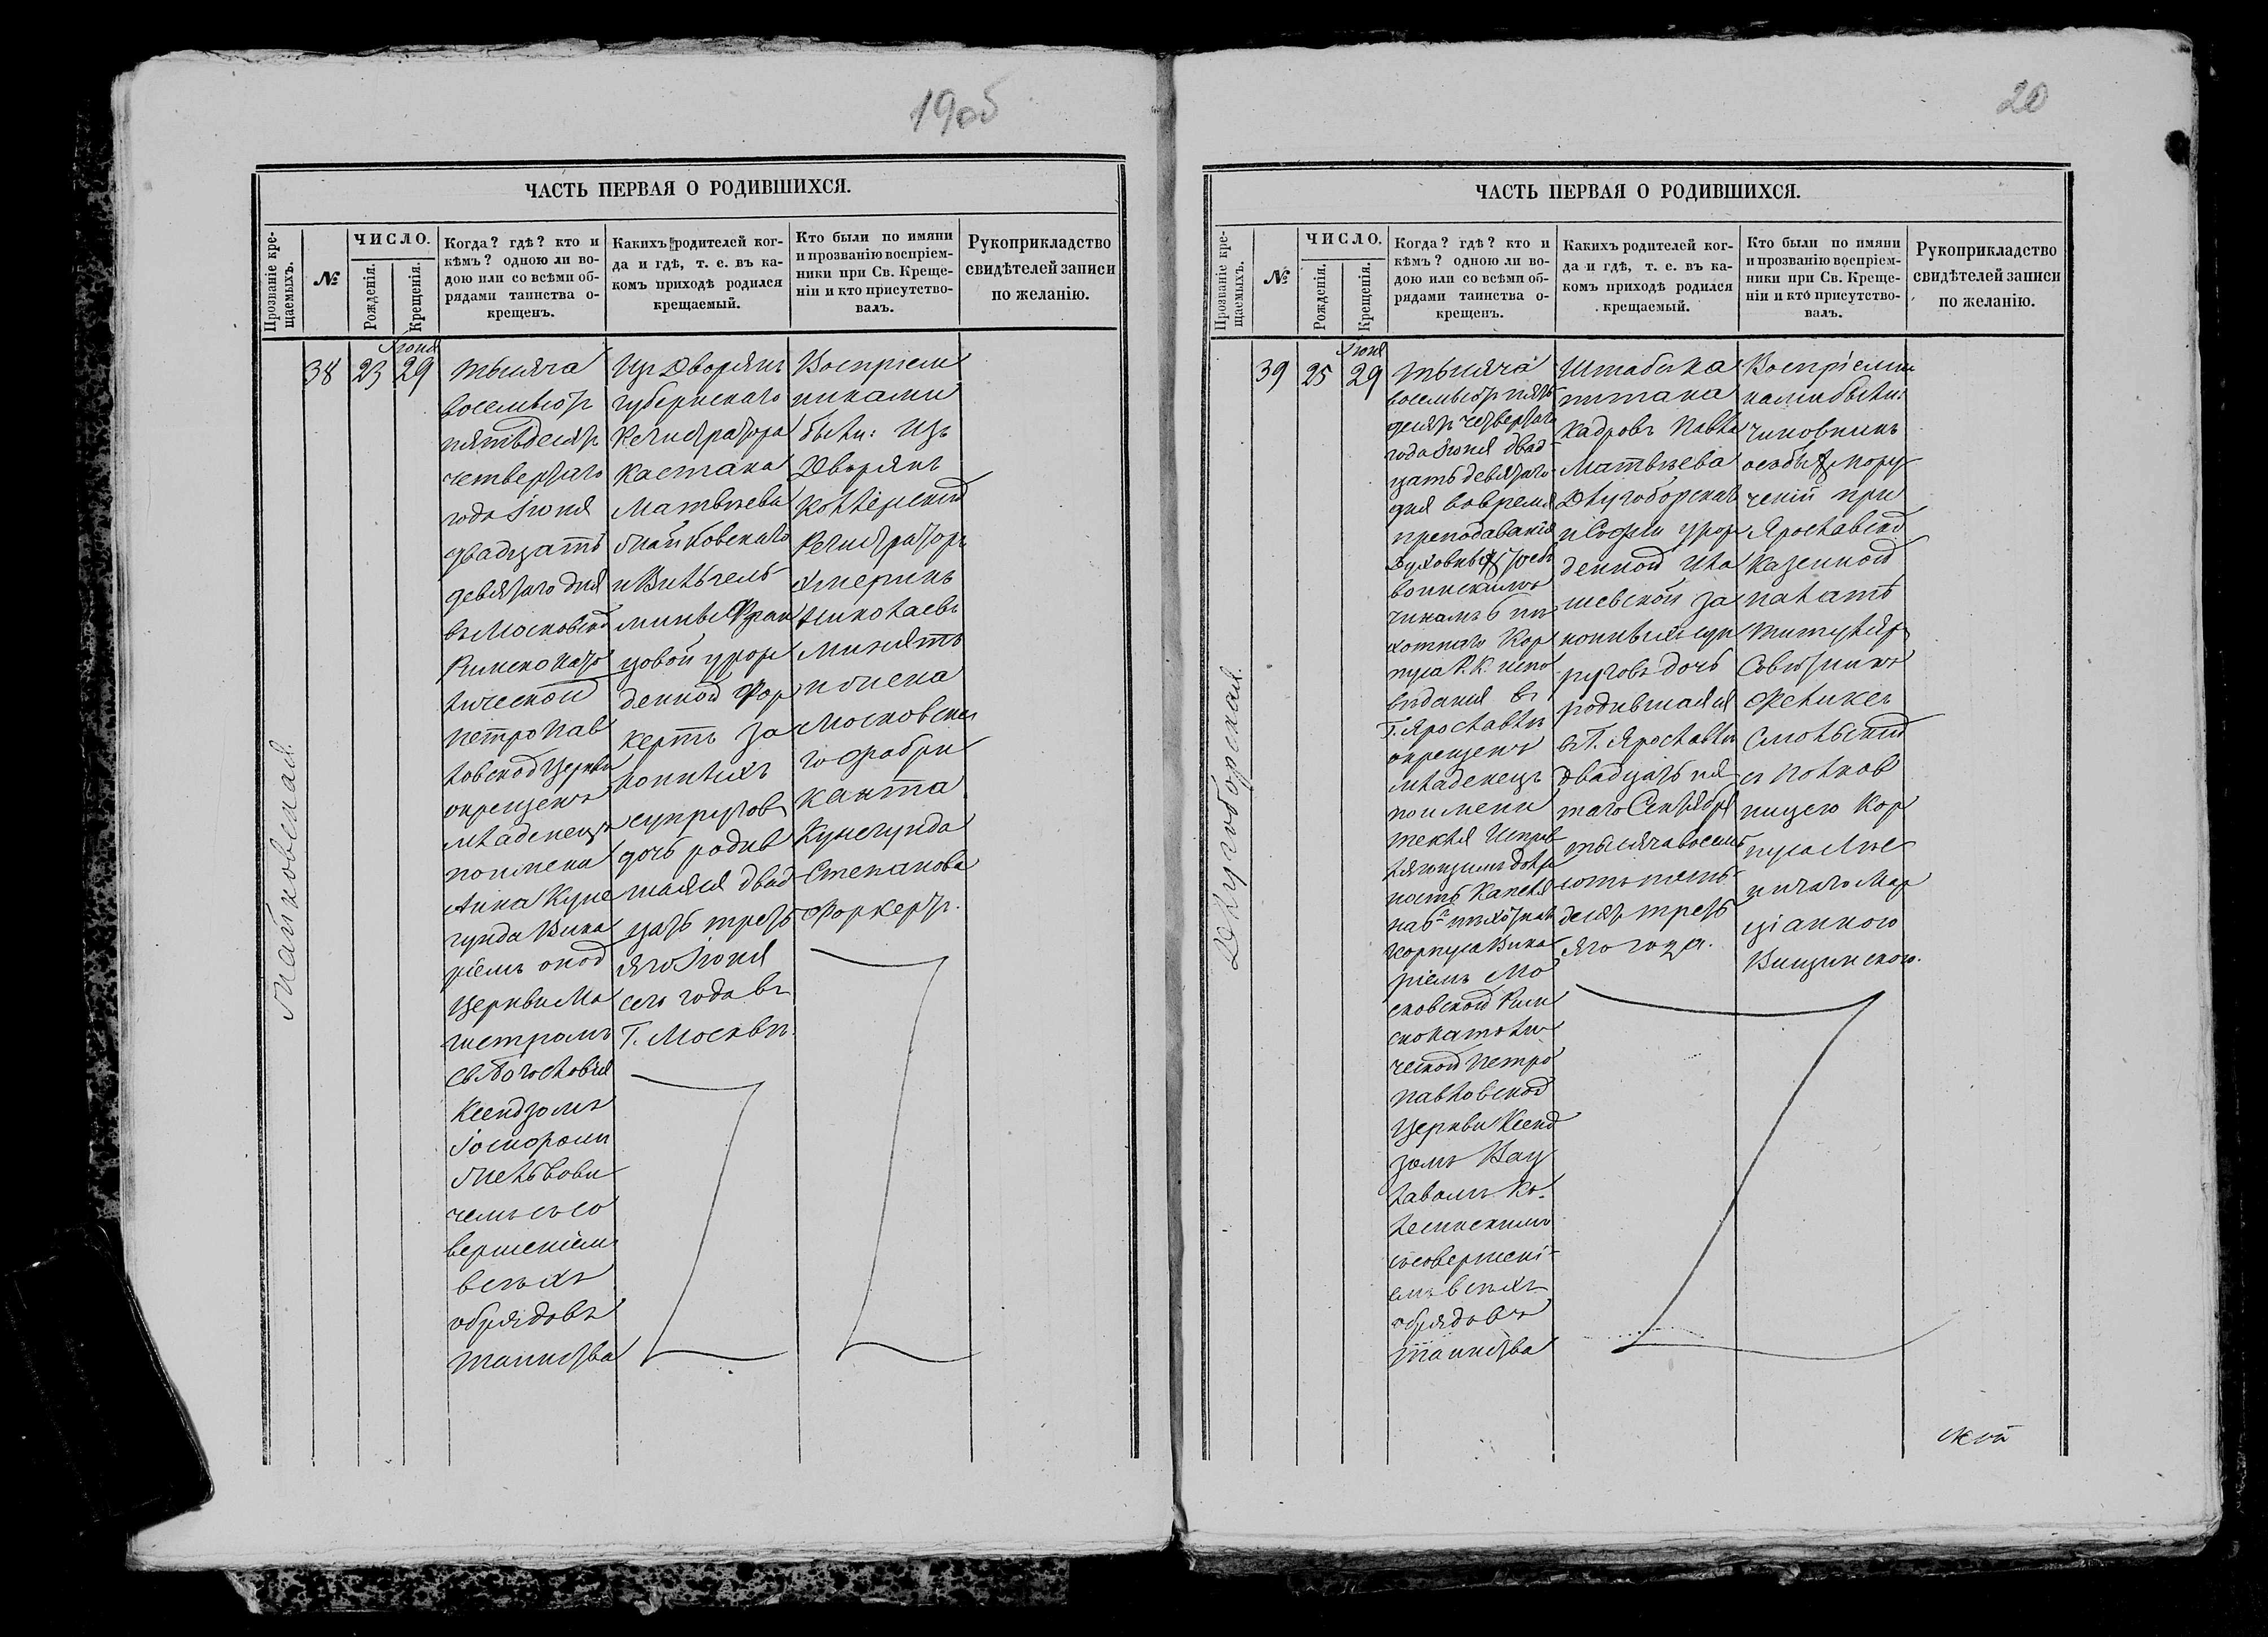 19об
ЧАСТЬ ПЕРВАЯ О РОДИВШИХСЯ.
Прозваніе кре-
щаемыхъ.
№
ЧИСЛО.
Рожденія.
Крещенія.
Когда? гдѣ? кто и
кѣмъ? одною ли во-
дою или со всѣми об-
рядами таинства о-
крещенъ.
Какихъ родителей ког-
да и гдѣ, т. е. въ ка-
комъ приходѣ родился
крещаемый.
Кто были по имяни
и прозванію воспріем-
ники при Св. Креще-
ніи и кто присутство-
валъ.
Рукоприкладство
свидѣтелей записи
по желанію.
38
23
Іюня
29
тысяча
восемьсотъ
пятьдесятъ
четвертаго
года Іюня
двадцать
девятаго дня
въ Московской
Римскокато
лической
Петропав
ловской Церкви
окрещенъ
младенецъ
поимени
Анна Куне
гунда Вика
ріемъ оной
Церкви Ма
гистромъ
Св. Богословія
Ксендзомъ
Іосифомъ
чемъ съ со
вершеніемъ
всѣхъ
обрядовъ
таинства
Изъ Дворянъ
губернскаго
Регистратора
Каетана
Матвѣева
и Вильгель
мины Фран
цовой урож
денной Фор
кертъ за
конныхъ
супруговъ
дочь родив
шаяся двад
цать треть
яго Іюня
сего года въ
Г. Москвѣ.
Воспріем
никами
были: Изъ
Дворянъ
Коллежскій
Регистраторъ
Николаевъ
Московска
го Фабри
канта
Кунегунда
Степанова
Форкертъ.
20
ЧАСТЬ ПЕРВАЯ О РОДИВШИХСЯ.
Прозваніе кре-
щаемыхъ.
№
ЧИСЛО.
Рожденія.
Крещенія.
Когда? гдѣ? кто и
кѣмъ? одною ли во-
дою или со всѣми об-
рядами таинства о-
крещенъ.
Какихъ родителей ког-
да и гдѣ, т. е. въ ка-
комъ приходѣ родился
крещаемый.
Кто были по имяни
и прозванію воспріем-
ники при Св. Креще-
ніи и кто присутство-
валъ.
Рукоприкладство
свидѣтелей записи
по желанію.
Длугоборская.
39
25
Іюня
29
тысяча
восемьсотъ пять
десятъ четвертаго
года Іюня двад
цать девятаго
дня вовремя
преподаванія
духовныхъ требъ
воинскимъ
чинамъ 6 пѣ
хотнаго Кор
пуса Р. К. испо
вѣданія въ
Г. Ярославлѣ
окрещенъ
младенецъ
поимени
Текля Исправ
ляющимъ долж
ность Капел
лана пѣхотнаго
Корпуса Вика
ріемъ Мо
сковской Рим
скокатоли
ческой Петро
павловской
Церкви Ксенд
зомъ Вац
лавомъ
съ совершені
емъ всѣхъ
обрядовъ
таинства
Штабска
питана
Кадровъ Павла
Матвѣева
Длугоборскаго
и Софіи урож
денной
шевской за
конныхъ суп
руговъ дочь
родившаяся
въ Г. Ярославлѣ
двадцать пя
таго Сентября
тысяча восемь
сотъ пять
десятъ треть
яго года.
Воспріемни
ками были:
чиновникъ
особыхъ пору
ченій при
Ярославской
Казенной
палатѣ
Титулярн
Совѣтникъ
Феликсъ
Смольскій
съ Полков
ницею Кор
пуса Лѣс
ничаго Мар
ціанною